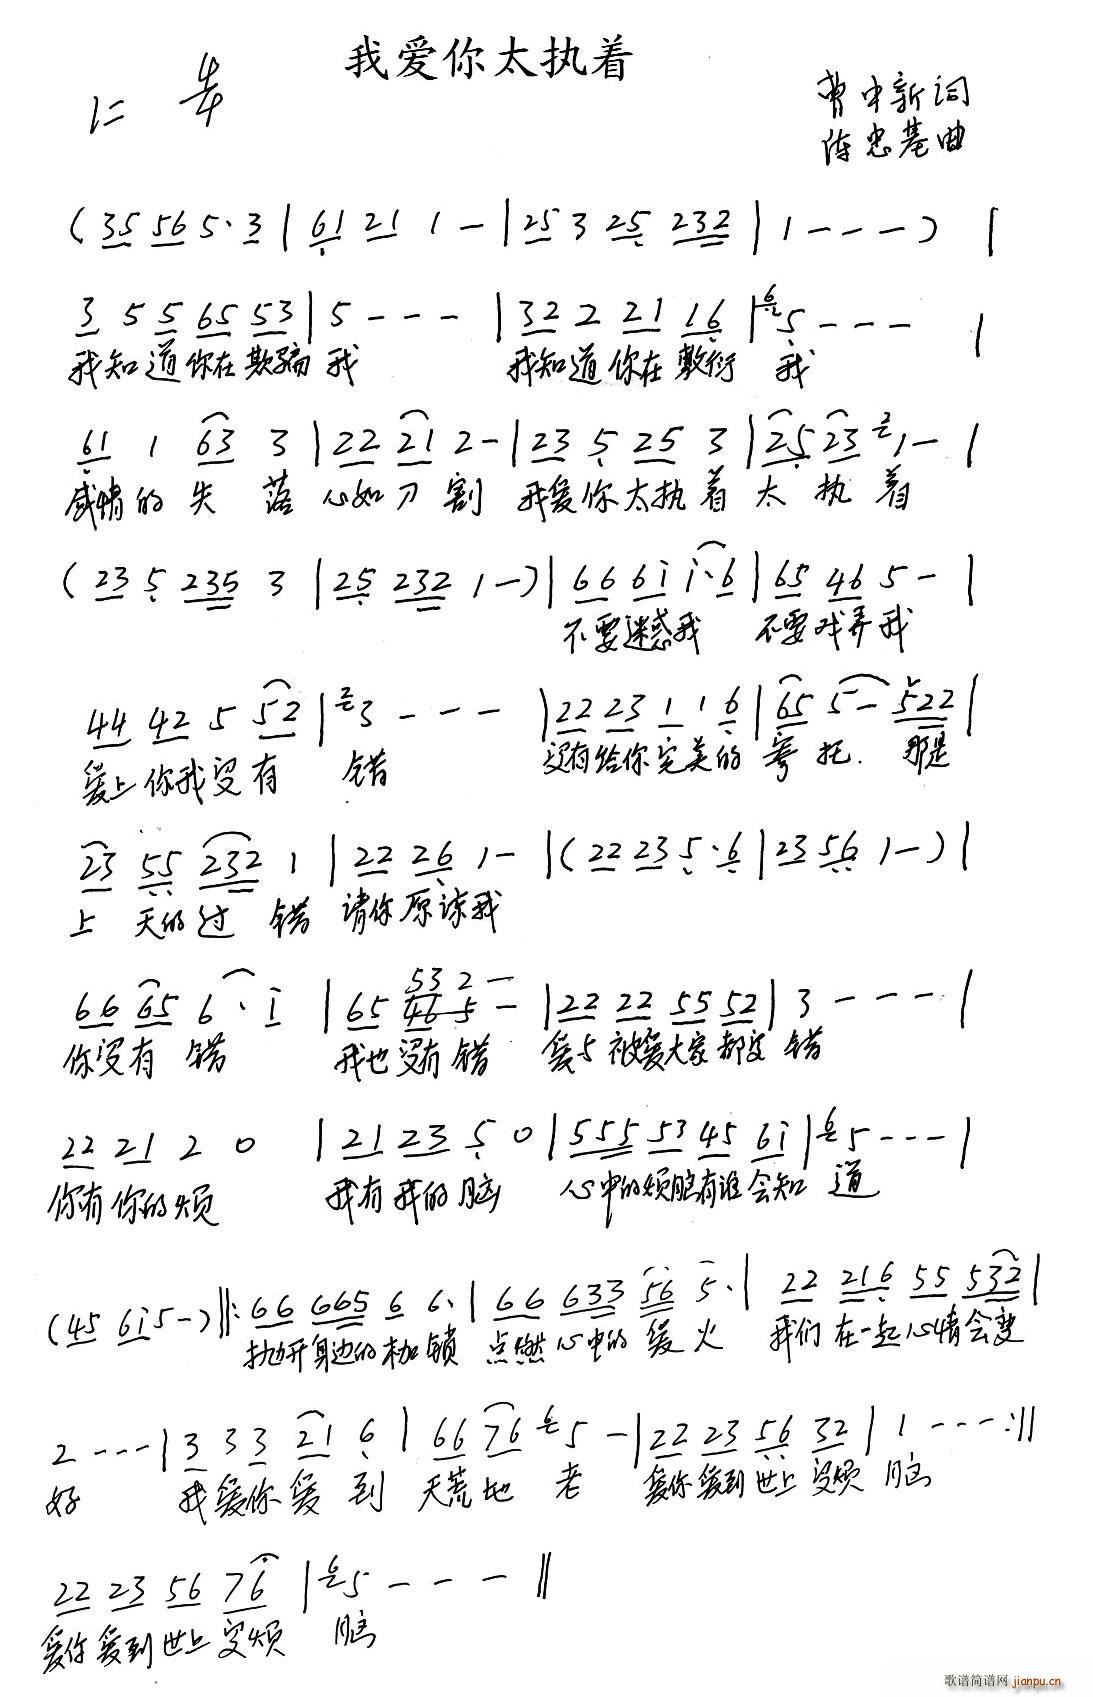 我爱你太执着
1= 4/4
曹中新词
陈忠基曲
(35 56 5·3 | 61 21 1 - | 25 3 25 232 | 1 - - - ) |
3 5 5 65 53 | 5 - - - | 32 2 21 16 | 6 5 - - - |
我知道你在欺骗我 我知道你在敷衍 我
61 1 63 3 | 22 21 2 - | 23 5 25 3 | 25 23 2 1 - |
感情的失 落 心如刀割 我爱你太执着 太 执 着
(23 5 235 3 | 25 232 1 - ) | 66 6i i·6 | 65 46 5 - |
不要迷惑我 不要戏弄我
44 42 5 52 | 2 3 - - - | 22 23 1 1 6 | 65 5 - 522 |
爱上你我没有 错 没有给你完美的 寄托. 那是
23 55 232 1 | 22 26 1 - | (22 23 5·6 | 23 56 1 - ) |
上 天的过 错 请你原谅我
53 2 -
66 65 6·i | 65 46 5 - | 22 22 55 52 | 3 - - - |
你没有 错 我也没有错 爱与被爱大家都没 错
22 21 2 0 | 21 23 5 0 | 555 53 45 6i | 6 5 - - - |
你有你的烦 我有我的脑 心中的烦脑有谁会知 道
(45 6i 5 - ) ‖: 66 665 6 6· | 66 633 56 5· | 22 216 55 532 |
抛开身边的枷锁 点燃心中的爱火 我们在一起心情会变
2 - - - | 3 3 3 21 6 | 66 76 6 5 - | 22 23 56 32 | 1 - - - :‖
好 我爱你爱 到 天荒地 老 爱你爱到世上没烦 脑
22 23 56 76 | 6 5 - - - ‖
爱你爱到世上没烦 脑
歌谱简谱网 jianpu.cn